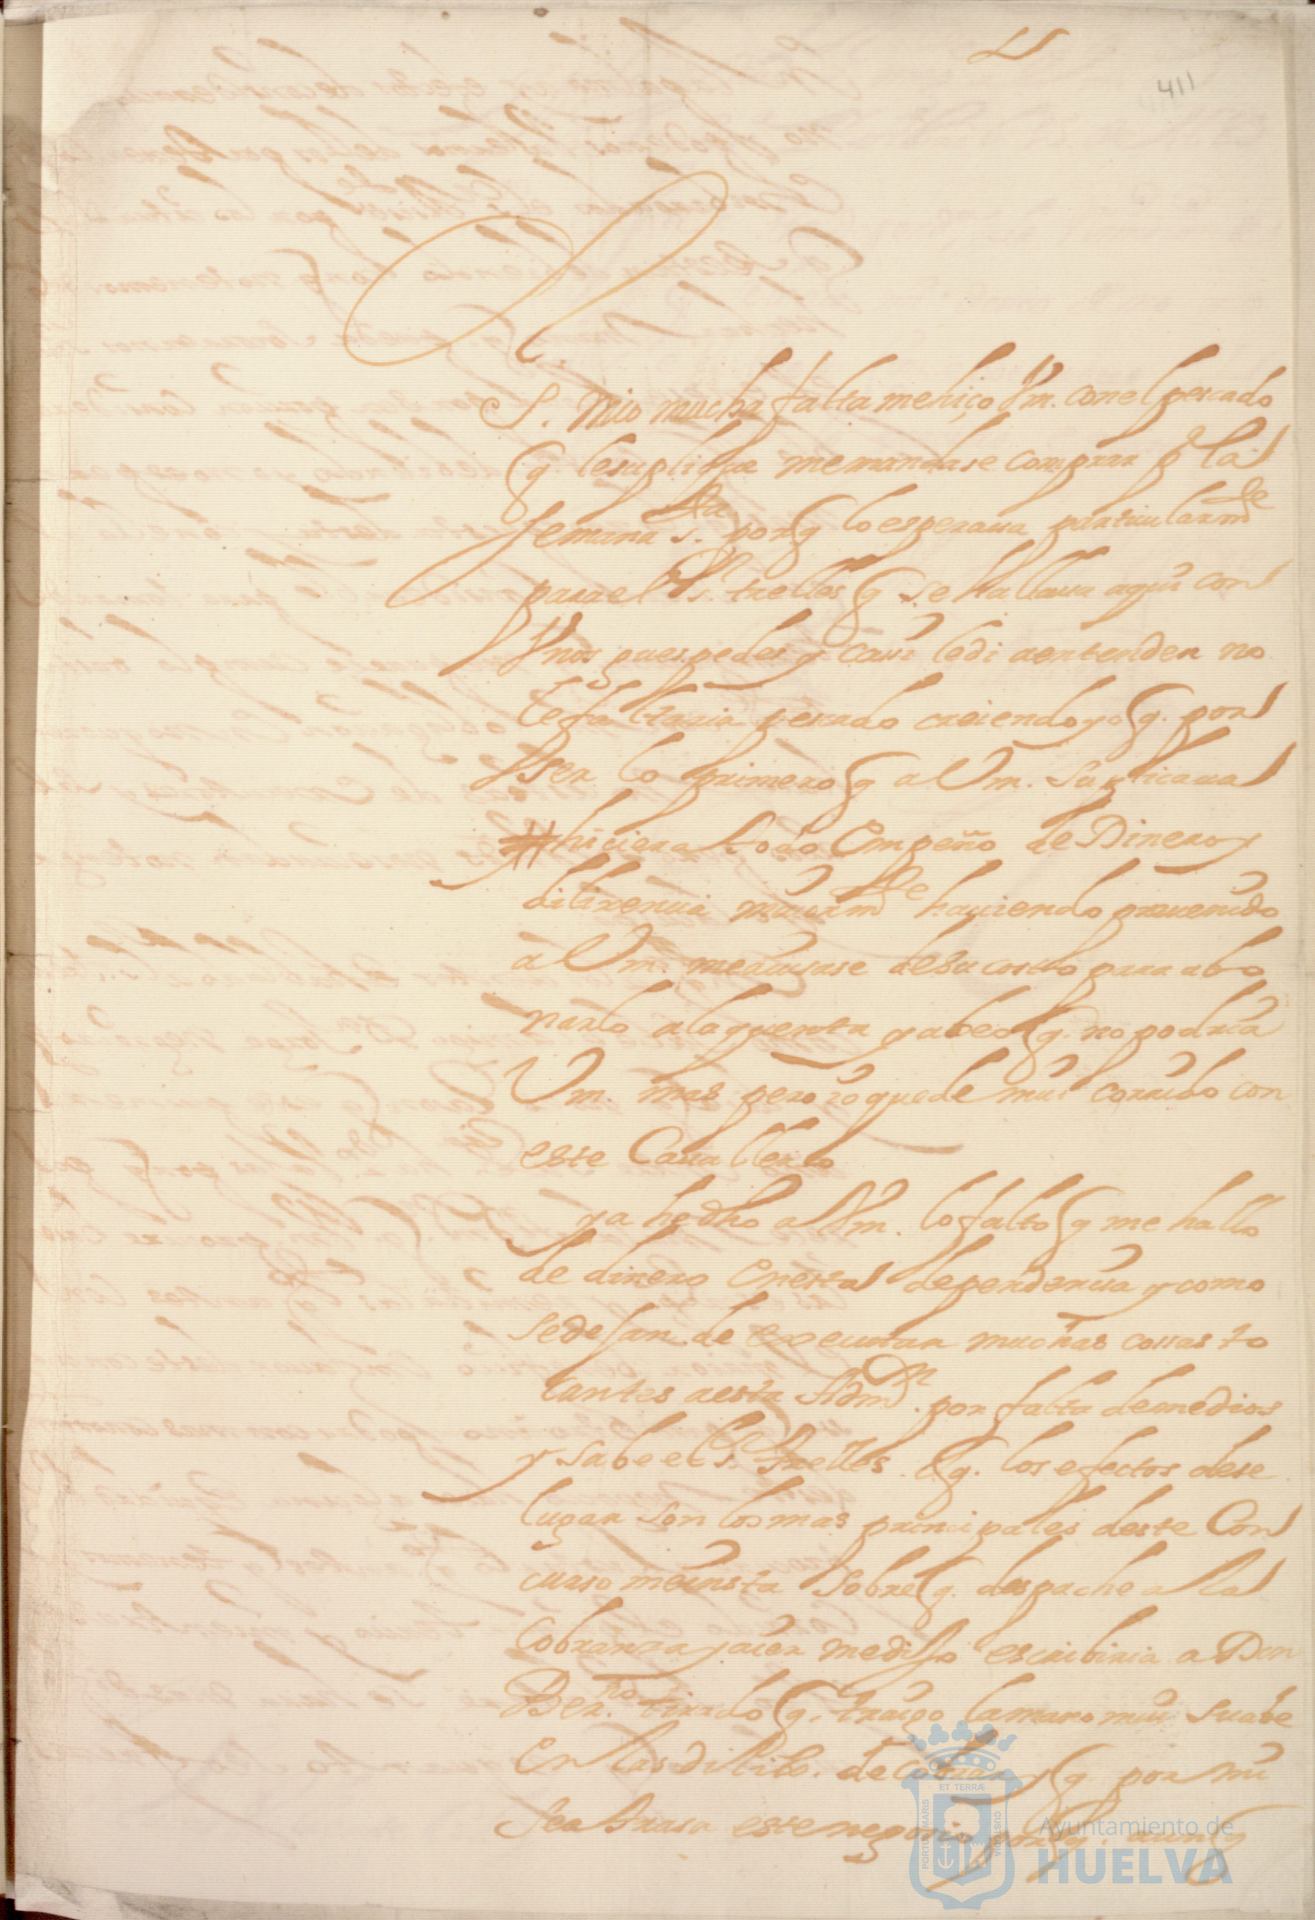 411
S. mio mucha falta me hiço Vm. con el pescado
q. le supliq̃ me mandase comprar p. la
semana S.ta porq lo esperaua particularm.te
para el S.r trelles q se hallaua aqui con
Vnos guespedes y casi le di a entender no
le faltaria pescado creiendo yo q. por
ser lo primero q a Vm. suplicaua
hiciera todo Empeño de Dinero y
dilixencia maiorm.te hauiendo preuenido
a Vm. me auisase de su costo para abo
narlo a la quenta y a beo q. no podria
Vm. mas pero io quede mui corrido con
este Cauallero
ya he dho a Vm. lo falto q me hallo
de dinero en esta dependencia y como
se dejan de executar muchas cossas to
cantes a esta Adm.on por falta de medios
y sabe el S.r trelles q. los efectos de ese
lugar son los mas principales deste Con
curso me insta sobre q. despache a la
cobranza y aier me dijo escribiria a Don
Ber.no tirado q. traigo la mano mui suabe
En las dilix.s de cobrar y q. por mi
se atrasa este negocio porq. aunq
Ayuntamiento de
HUELVA
PORTUS MARIS
ET TERRÆ
CUSTODIA